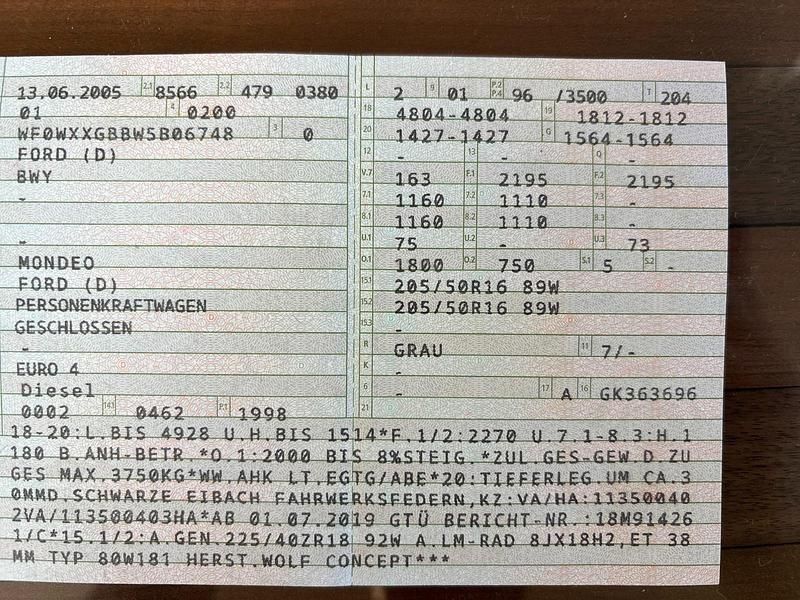 13.06.2005 2.1 8566 2.2 479 0380
01 4 0200
WF0WXXGBBW5B06748 3 0
FORD (D)
BWY
-
-
MONDEO
FORD (D)
PERSONENKRAFTWAGEN
GESCHLOSSEN
-
EURO 4
Diesel
0002 14.1 0462 P.1 1998
L 2 9 01 P.2 P.4 96 /3500 T 204
18 4804-4804 19 1812-1812
20 1427-1427 G 1564-1564
12 - 13 - Q -
V.7 163 F.1 2195 F.2 2195
7.1 1160 7.2 1110 7.3 -
8.1 1160 8.2 1110 8.3 -
U.1 75 U.2 - U.3 73
O.1 1800 O.2 750 S.1 5 S.2 -
15.1 205/50R16 89W
15.2 205/50R16 89W
15.3 -
R GRAU 11 7/-
K -
6 - 17 A 16 GK363696
21
18-20:L.BIS 4928 U.H.BIS 1514*F.1/2:2270 U.7.1-8.3:H.1
180 B.ANH-BETR.*O.1:2000 BIS 8%STEIG.*ZUL.GES-GEW.D.ZU
GES MAX.3750KG*WW.AHK LT.EGTG/ABE*20:TIEFERLEG.UM CA.3
0MMD.SCHWARZE EIBACH FAHRWERKSFEDERN,KZ:VA/HA:11350040
2VA/113500403HA*AB 01.07.2019 GTÜ BERICHT-NR.:18M91426
1/C*15.1/2:A.GEN.225/40ZR18 92W A.LM-RAD 8JX18H2,ET 38
MM TYP 80W181 HERST.WOLF CONCEPT***